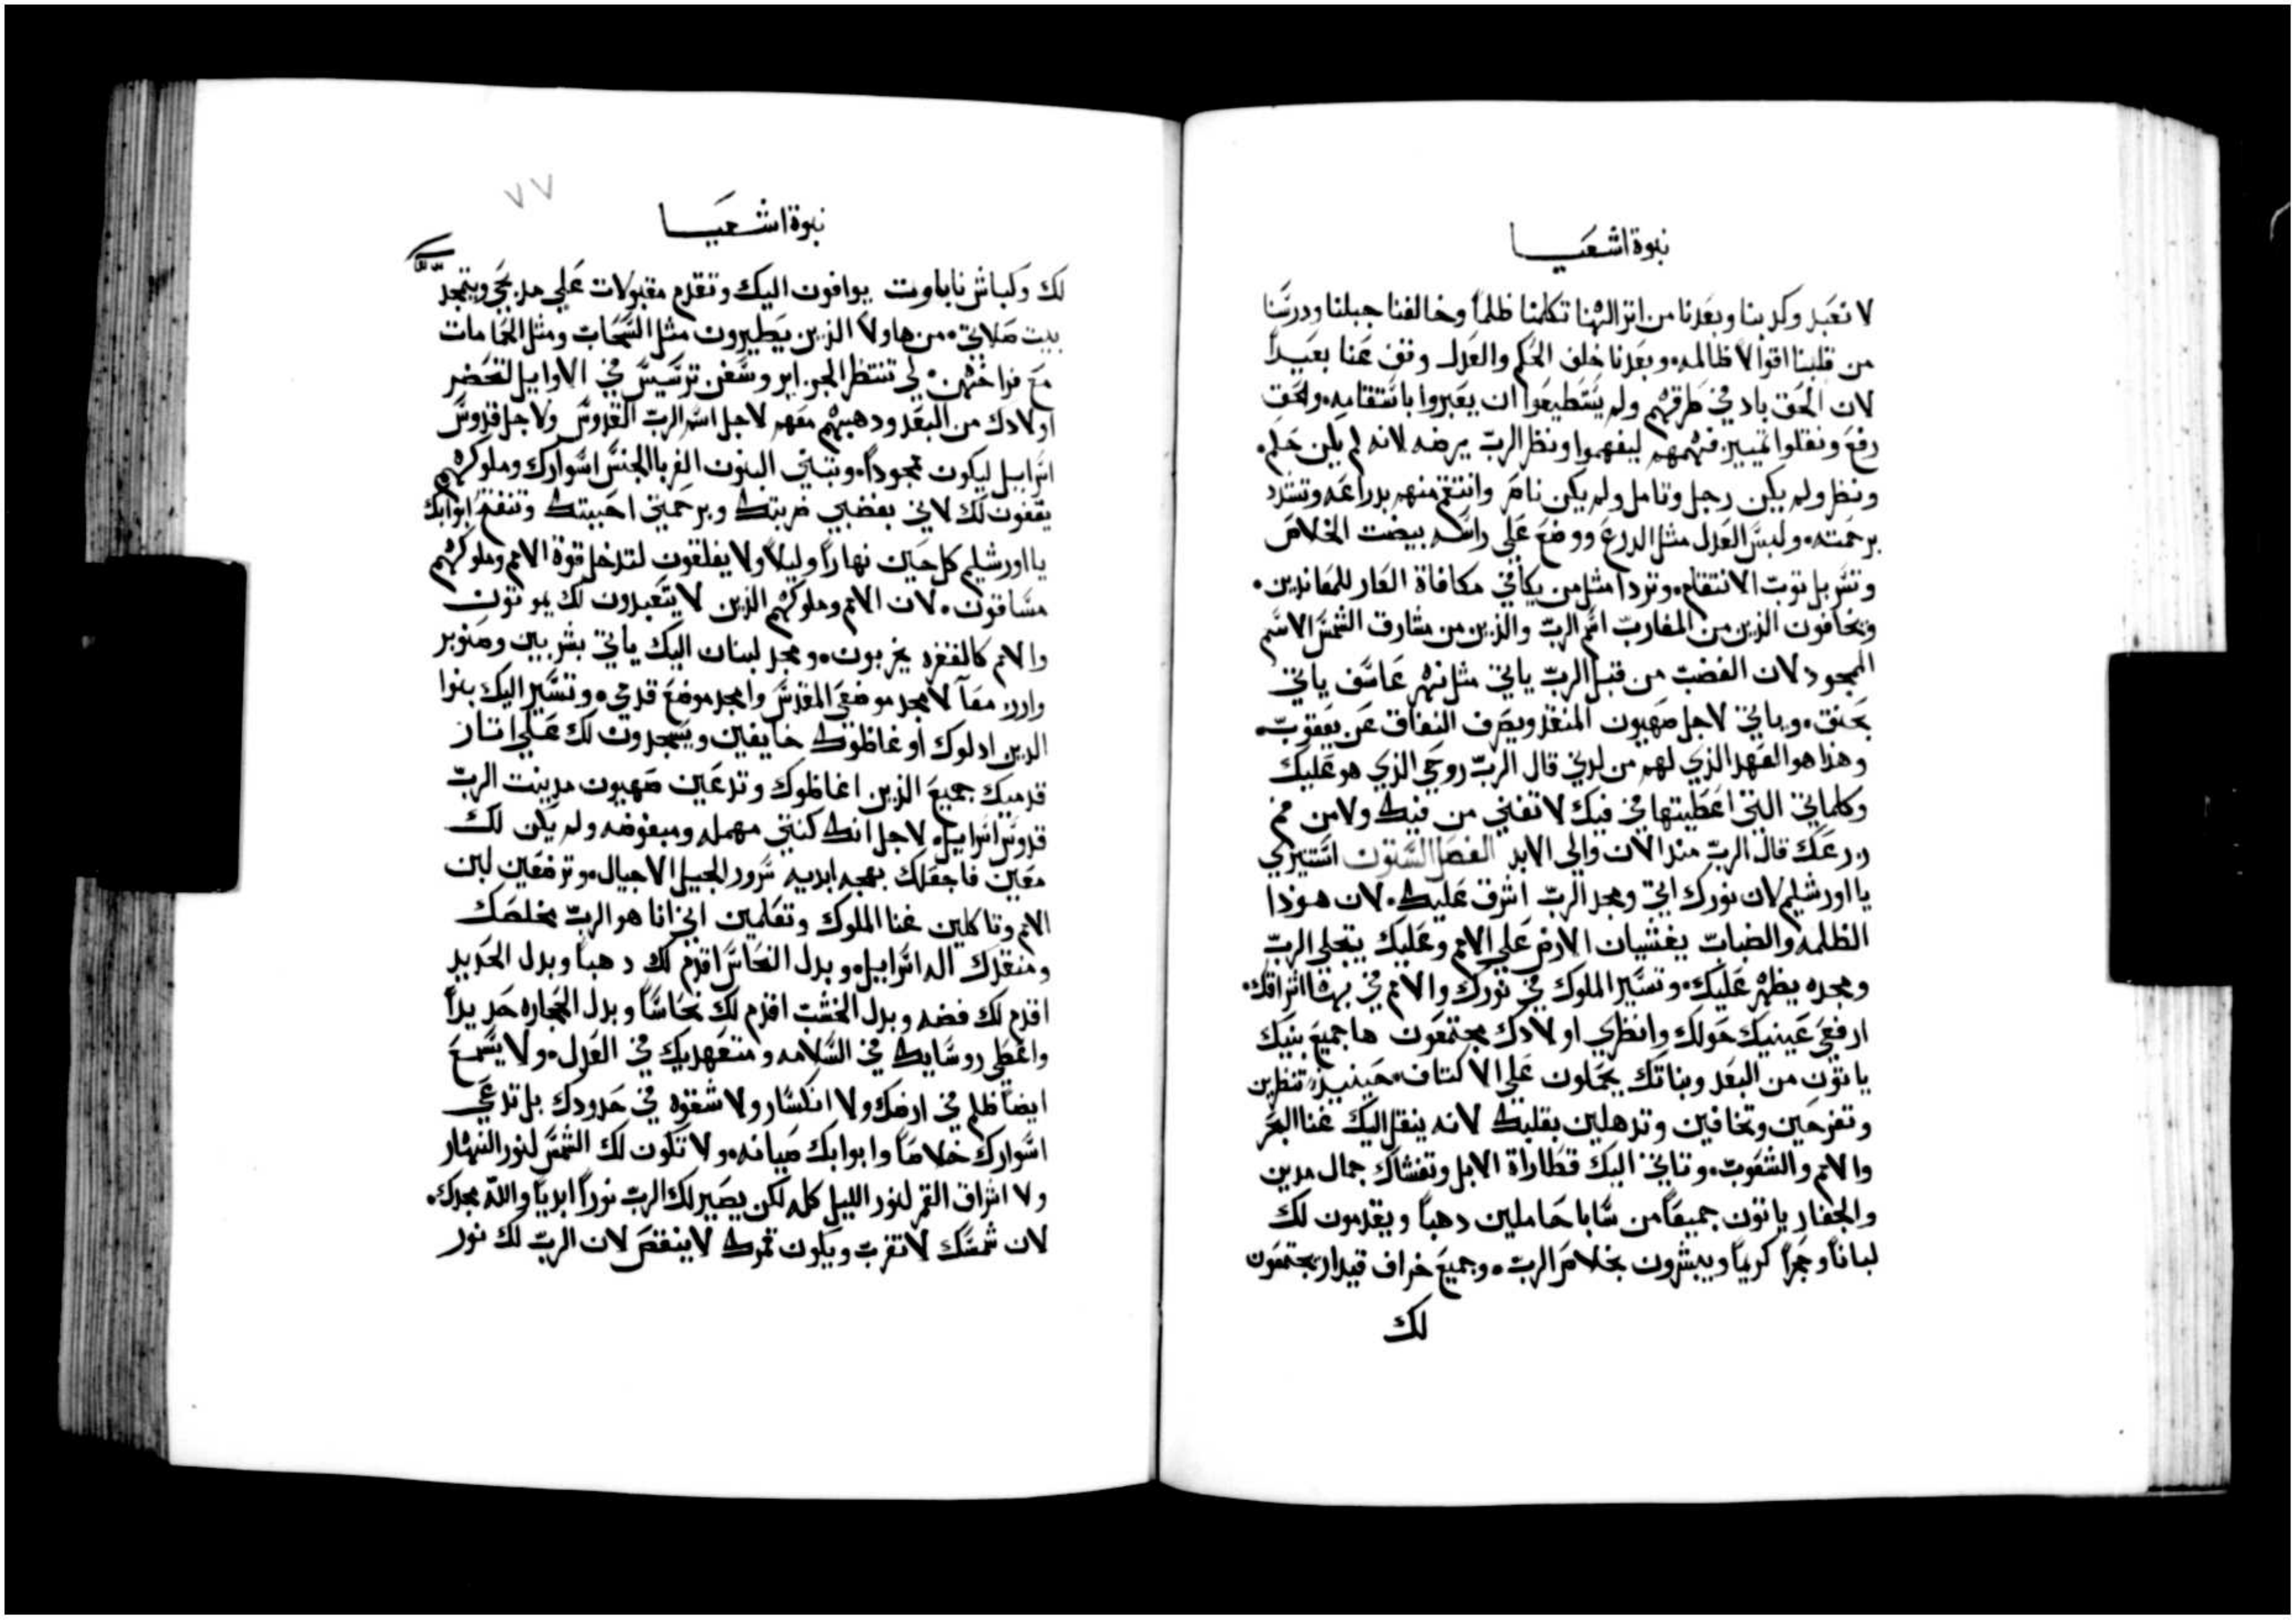 نبوة اشعيا
لا نعبد وكدبنا وبعدنا من اتر الهنا تكلمنا ظلماً وخالفنا حبلنا ودرسنا
من قلبنا اقوالاً ظالمه وبعدنا خلف الحكم والعدل وقف عنا بعيداً
لان الحق باد في طرقهم ولم يستطيعوا ان يعبروا باستقامه والحق
رفع ونقلوا تمييز فهمهم ليفهموا ونظر الرب يرضه لانه لم يكن حكم
ونظر ولم يكن رجل وتامل ولم يكن ناصر وانتقم منهم بدراعه وتشدد
برحمته ولبس العدل مثل الدرع ووضع علي راسه بيضت الخلاص
وتسربل توب الانتقام وتردا مثل من يكافي مكافاة العار للمعاندين
ويخافون الذين من المغارب اسم الرب والذين من مشارق الشمس الاسم
الممجود لان الغضب من قبل الرب ياتي مثل نهر عاسف ياتي
بحنق وياتي لاجل صهيون المنقد ويصرف النفاق عن يعقوب
وهذا هو العهد الذي لهم من لدني قال الرب روحي الذي هو عليك
وكلماتي التي اعطيتها في فيك لا تفني من فيك ولا من فم
زرعك قال الرب مند الان والي الابد الفصل الستون استنيري
يا اورشليم لان نورك اتي ومجد الرب اشرق عليك لان هوذا
الظلمه والضباب يغشيان الارض علي الامم وعليك يتجلي الرب
ومجده يظهر عليك وتسير الملوك في نورك والامم في بهتا اشراقك
ارفعي عينيك حولك وانظري اولادك مجتمعون ها جميع بنيك
ياتون من البعد وبناتك يحملون علي الاكتاف حينيذ تنظرين
وتفرحين وتخافين وتدهلين بقلبك لانه ينقل اليك غنا البحر
والامم والشعوب وتاتي اليك قطاراة الابل وتغشاك جمال مدين
والجفار ياتون جميعاً من سابا حاملين دهباً ويقدمون لك
لباناً وحجراً كريماً ويبشرون بخلاص الرب وجميع خراف قيدار يجتمعون
لك
٧٧
نبوة اشعيا
لك وكباش ناباوت يوافون اليك وتقدم مقبولات علي مدبحي ويتمجد
بيت صلاتي من هاولا الذين يطيرون مثل السحاب ومثل الحمامات
مع فراخهن لي تنتظر الجزاير وسفن ترسيس في الاوايل لتحضر
اولادك من البعد ودهبهم معهم لاجل اسم الرب القدوس ولاجل قدوس
اسراييل ليكون ممجوداً وتبني البنون الغربا الجنس اسوارك وملوكهم
يقفون لك لاني بغضبي ضربتك وبرحمتي احببتك وتنفتح ابوابك
يا اورشليم كل حين نهاراً وليلاً ولا يغلقون لتدخل قوة الامم وملوكهم
مساقون لان الامم وملوكهم الذين لا يتعبدون لك يموتون
والامم كالقفره يخربون ومجد لبنان اليك ياتي بشربين وصنوبر
وارز معاً لامجد موضعي المقدس وامجد موضع قدمي وتسير اليك بنوا
الدين ادلوك او غاظوك خايفين ويسجدون لك علي اتار
قدميك جميع الذين اغاظوك وتدعين صهيون مدينت الرب
قدوس اسراييل لاجل انك كنتي مهمله ومبغوضه ولم يكن لك
معين فاجعلك بهجه ابديه سرور الجيل الاجيال وترضعين لبن
الامم وتاكلين غنا الملوك وتعلمين اني انا هو الرب مخلصك
ومنقدك اله اسراييل وبدل النحاس اقدم لك دهباً وبدل الحديد
اقدم لك فضه وبدل الخشب اقدم لك نحاساً وبدل الحجاره حديداً
واعطي روسايك في السلامه ومتعهديك في العدل ولا يسمع
ايضاً ظلم في ارضك ولا انكسار ولا شقوه في حدودك بل تدعي
اسوارك خلاصاً وابوابك صيانه ولا تكون لك الشمس لنور النهار
ولا اشراق القمر لنور الليل كله لكن يصير لك الرب نوراً ابدياً والله مجدك
لان شمسك لا تغرب ويكون قمرك لا ينقص لان الرب لك نور